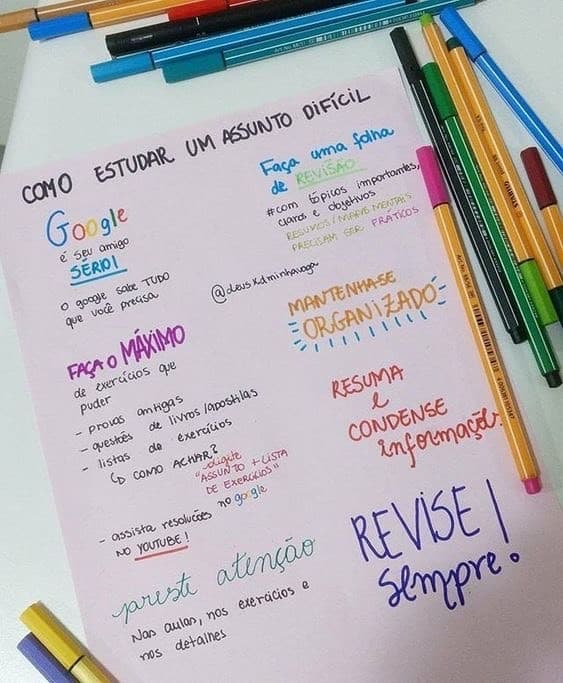 COMO ESTUDAR UM ASSUNTO DIFÍCIL
Google
é seu amigo
SÉRIO!
o google sabe TUDO
que você precisa
@deusxdminhavaga
FAÇA O MÁXIMO
de exercícios que
puder
- provas antigas
- questões de livros/apostilas
- listas de exercícios
↳ COMO ACHAR?
"digite
"ASSUNTO + LISTA
DE EXERCÍCIOS"
no google
- assista resoluções
NO YOUTUBE!
preste atenção
Nas aulas, nos exercícios e
nos detalhes
Faça uma folha
de REVISÃO
#com tópicos importantes,
claros e objetivos
RESUMOS/MAPAS MENTAIS
PRECISAM SER PRÁTICOS
MANTENHA-SE
ORGANIZADO
RESUMA
E
CONDENSE
informação
REVISE!
sempre.